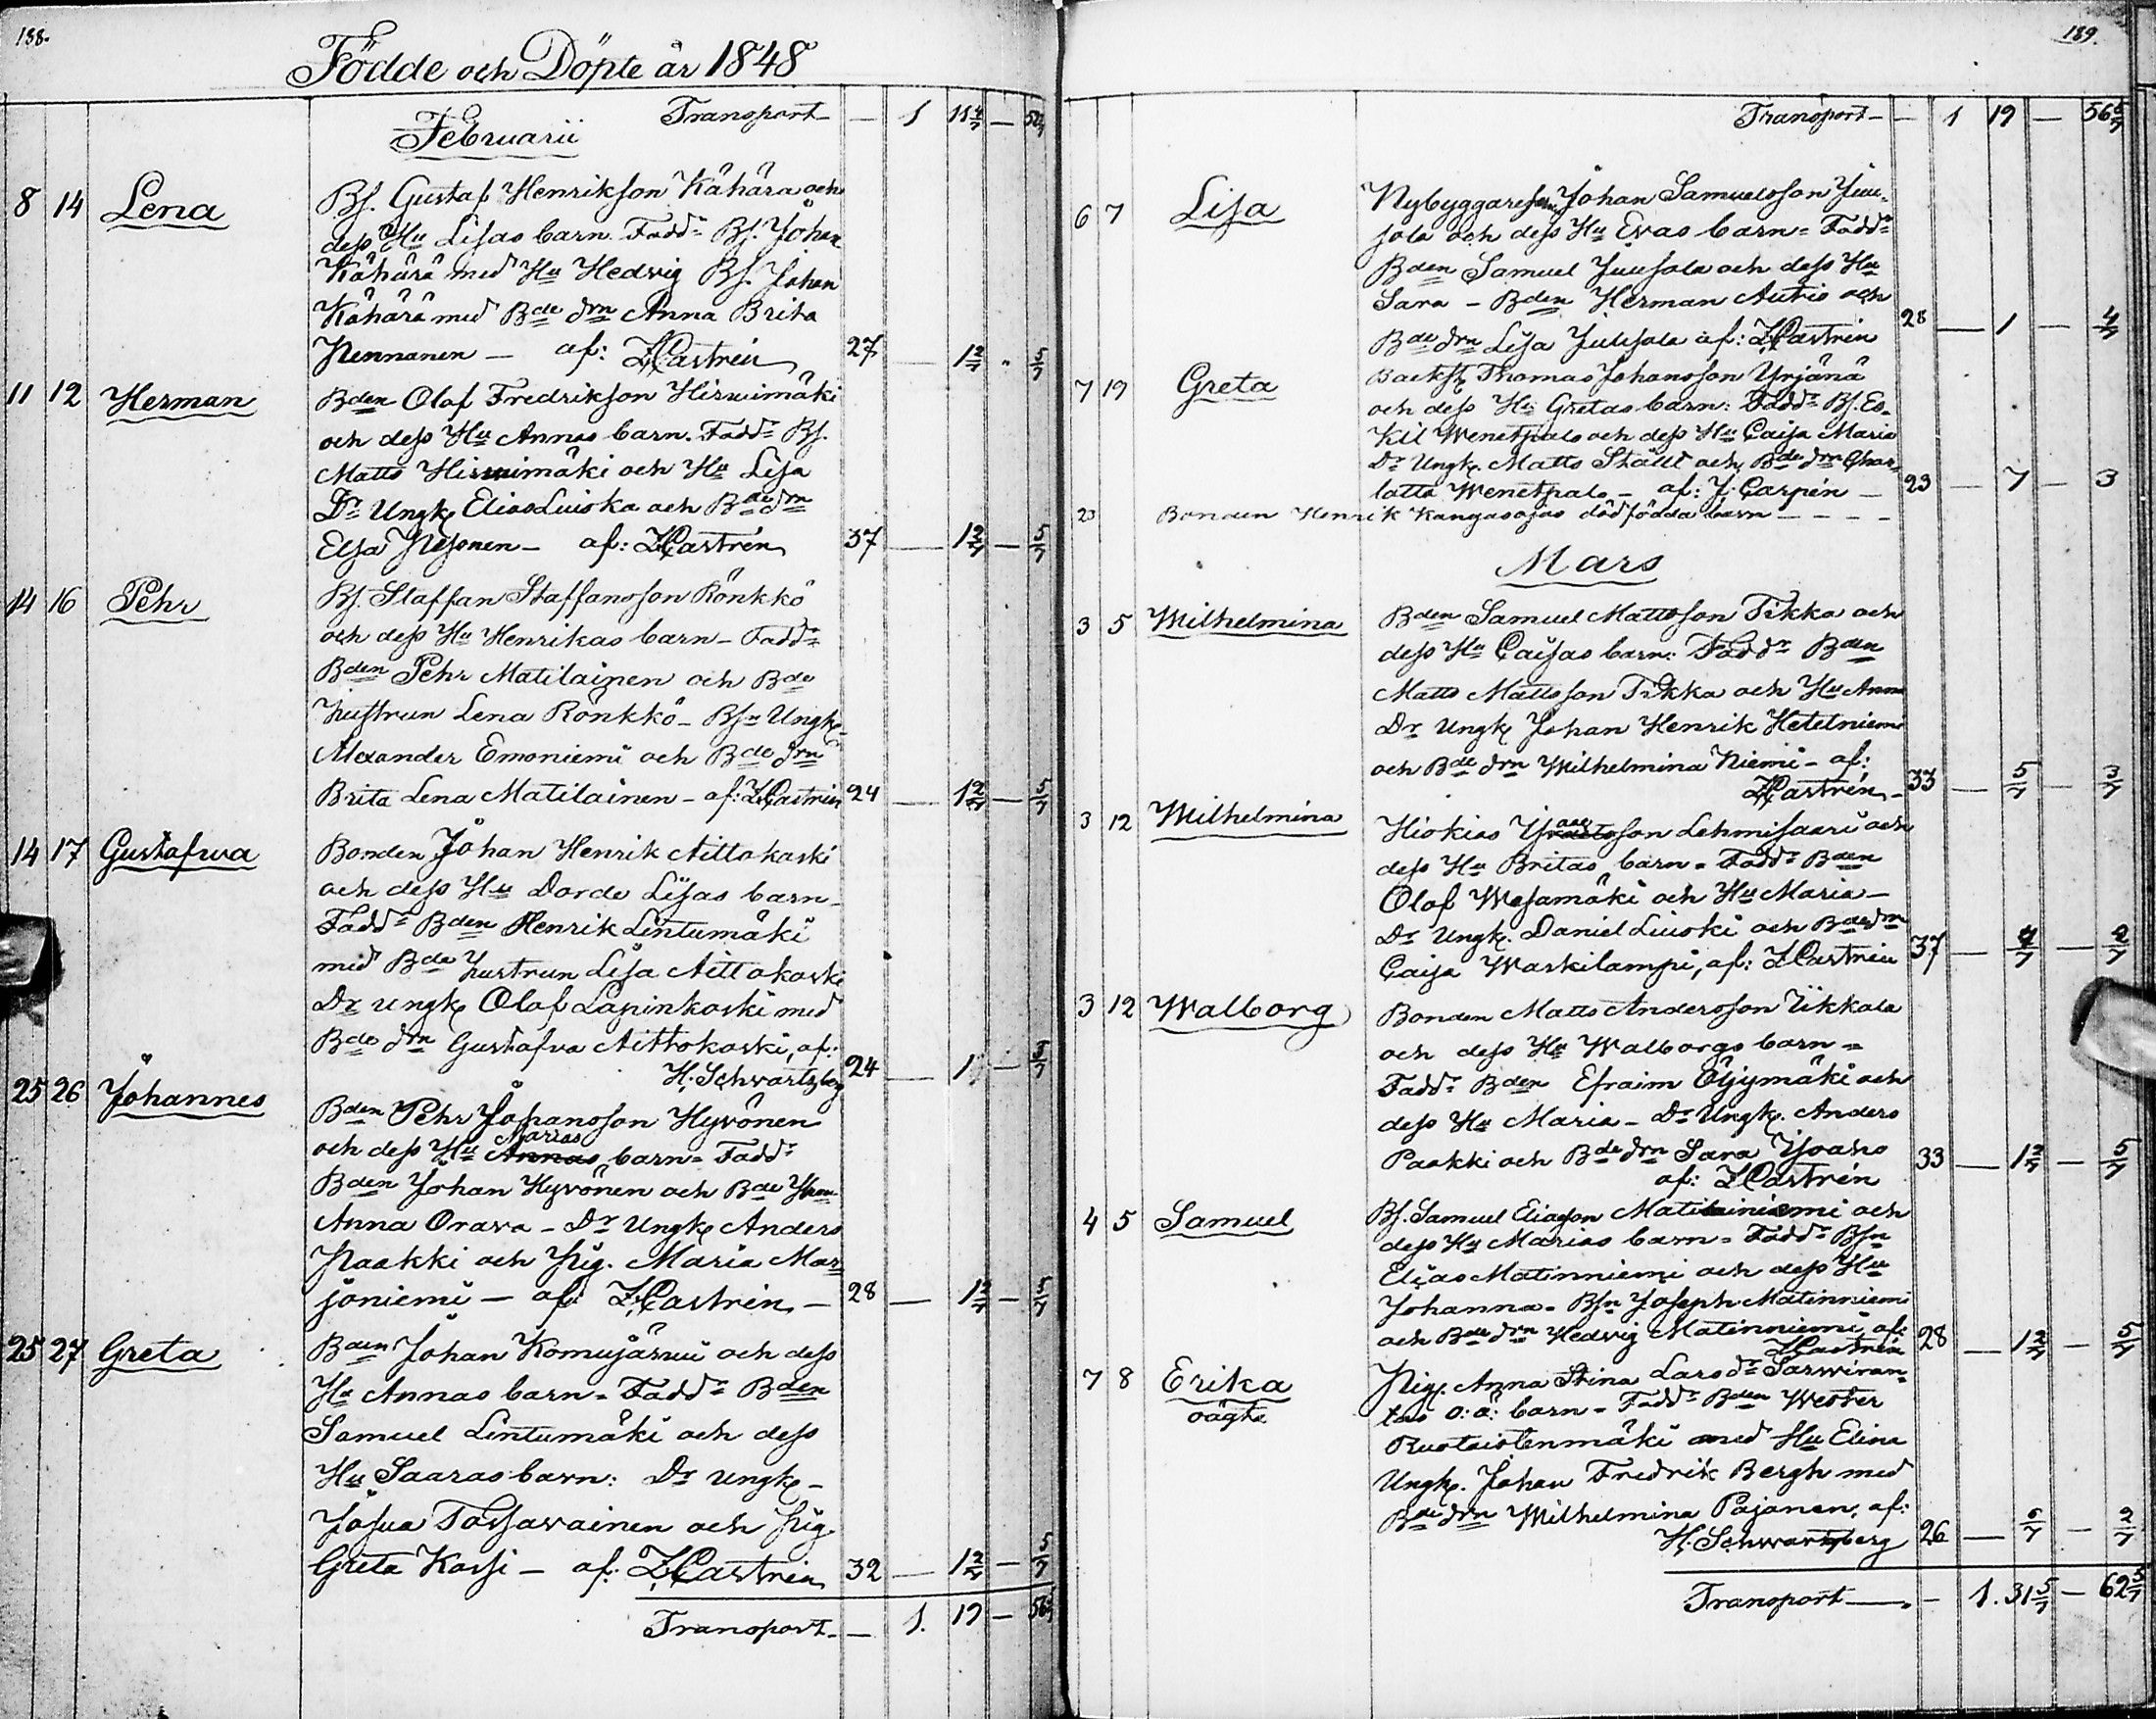 188.
Födde och Döpte år 1848
Transport - — 1 11 4/7 —
Februarii
8 14 Lena
Bs. Gustaf Henrikson Kähärä och
dess Hu Lisas barn. Fadd:r Bs. Johan
Kähärä med Hu Hedvig Bs. Johan
Kähärä med Bde drn Anna Brita
Pennanen — af: ZCastrén 27 1 2/7 - 5/7
11 12 Herman
Bden Olof Fredrikson Hirvimäki
och dess Hu Annas barn. Fadd:r Bs.
Matts Hirvimäki och Hu Lisa
Dr Ungk. Elias Luiska och Bde drn
Elsa Pesonen — af: ZCastrén 37 — 1 2/7 — 5/7
14 16 Pehr
Bs. Staffan Staffansson Rönkkö
och dess Hu Henrikas barn — Fadd:r
Bden Pehr Matilainen och Bde
hustrun Lena Rönkkö — Bsn Ungk.
Alexander Emoniemi och Bde drn
Brita Lena Matilainen — af: ZCastrén 24 — 1 2/7 — 5/7
14 17 Gustafwa
Bonden Johan Henrik Aittokoski
och dess Hu Dorde Lisas barn —
Fadd:r Bden Henrik Lintumäki
med Bde hustrun Lisa Aittokoski
Dr ungk. Olof Lapinkoski med
Bde drn Gustafva Aittokoski, af:
H. Schwartzberg 24 — 1 —
25 26 Johannes
Bden Pehr Johansson Hyvönen
Marias
och dess Hu Annas barn = Fadd:r
Bden Johan Hyvönen och Bde
Anna Orava — Dr Ungk. Anders
Paakki och Pig. Maria Mar=
joniemi — af: ZCastrén — 28 — 1 2/7 — 5/7
25 27 Greta
Bden Johan Komujärvi och dess
Hu Annas barn = Fadd:r Bden
Samuel Lintumäki och dess
Hu Saaras barn: Dr ungk. —
Josua Tossavainen och Pig.
Greta Kassi — af: ZCastrén 32 — 1 2/7 — 5/7
Transport — 1. 19 — 56 5/7
189.
Transport — — 1 19 — 56 5/7
6 7 Lisa
Nybyggaresn Johan Samuelsson Juu=
sola och dess Hu Evas barn = Fadd:r
Bden Samuel Juusola och dess Hu
Sara — Bden Herman Autio och
Bde drn Lisa Juusola af: ZCastrén 28 — 1 — 4/7
7 19 Greta
Backst. Thomas Johansson Yrjänä
och dess Hu Gretas barn: Fadd:r Bs. Es=
kil Wenetpalo och dess Hu Caisa Maria
Dr Ungk. Matts Ståhl och Bde drn Char=
lotta Wenetpalo — af: J. Carpén — 23 — 7 — 3
23 Bonden Henrik Kangasojas dödfödda barn — — — —
Mars
3 5 Wilhelmina
Bden Samuel Mattsson Tikka och
dess Hu Caisas barn: Fadd:r Bden
Matts Mattsson Tikka och Hu Anna
Dr Ungk. Johan Henrik Heteniemi
och Bde drn Wilhelmina Niemi — af:
ZCastrén — 33 — 5/7 — 3/7
3 12 Wilhelmina
Hiskias son Lehmisaari och
dess Hu Britas barn = Fadd:r Bden
Olof Wesamäki och Hu Maria —
Dr Ungk. Daniel Luiski och Bde drn
Caisa Waskilampi, af: ZCastrén 37 — 4/7 — 2/7
3 12 Walborg
Bonden Matts Andersson Ukkola
och dess Hu Walborgs barn =
Fadd:r Bden Efraim Öljymäki och
dess Hu Maria — Dr Ungk. Anders
Paakki och Bde drn Sara Ypaho
af: ZCastrén 33 — 1 2/7 — 5/7
4 5 Samuel
Bs. Samuel Eliasson Matinniemi och
dess Hu Marias barn = Fadd:r Bsn
Elias Matinniemi och dess Hu
Johanna = Bsn Joseph Matinniemi
och Bde drn Hedvig Matinniemi, af:
ZCastrén 28 — 1 2/7 — 5/7
7 8 Erika
oägta
Pig. Anna Stina Larsdr Sarwiran=
tas o: ä: barn = Fadd:r Bden Wester
Ruotaistenmäki med Hu Elina
Ungk. Johan Fredrik Bergh med
Bde drn Wilhelmina Pajanen, af:
H. Schwartzberg 26 — 6/7 — 2/7
Transport — — 1. 31 5/7 — 62 5/7